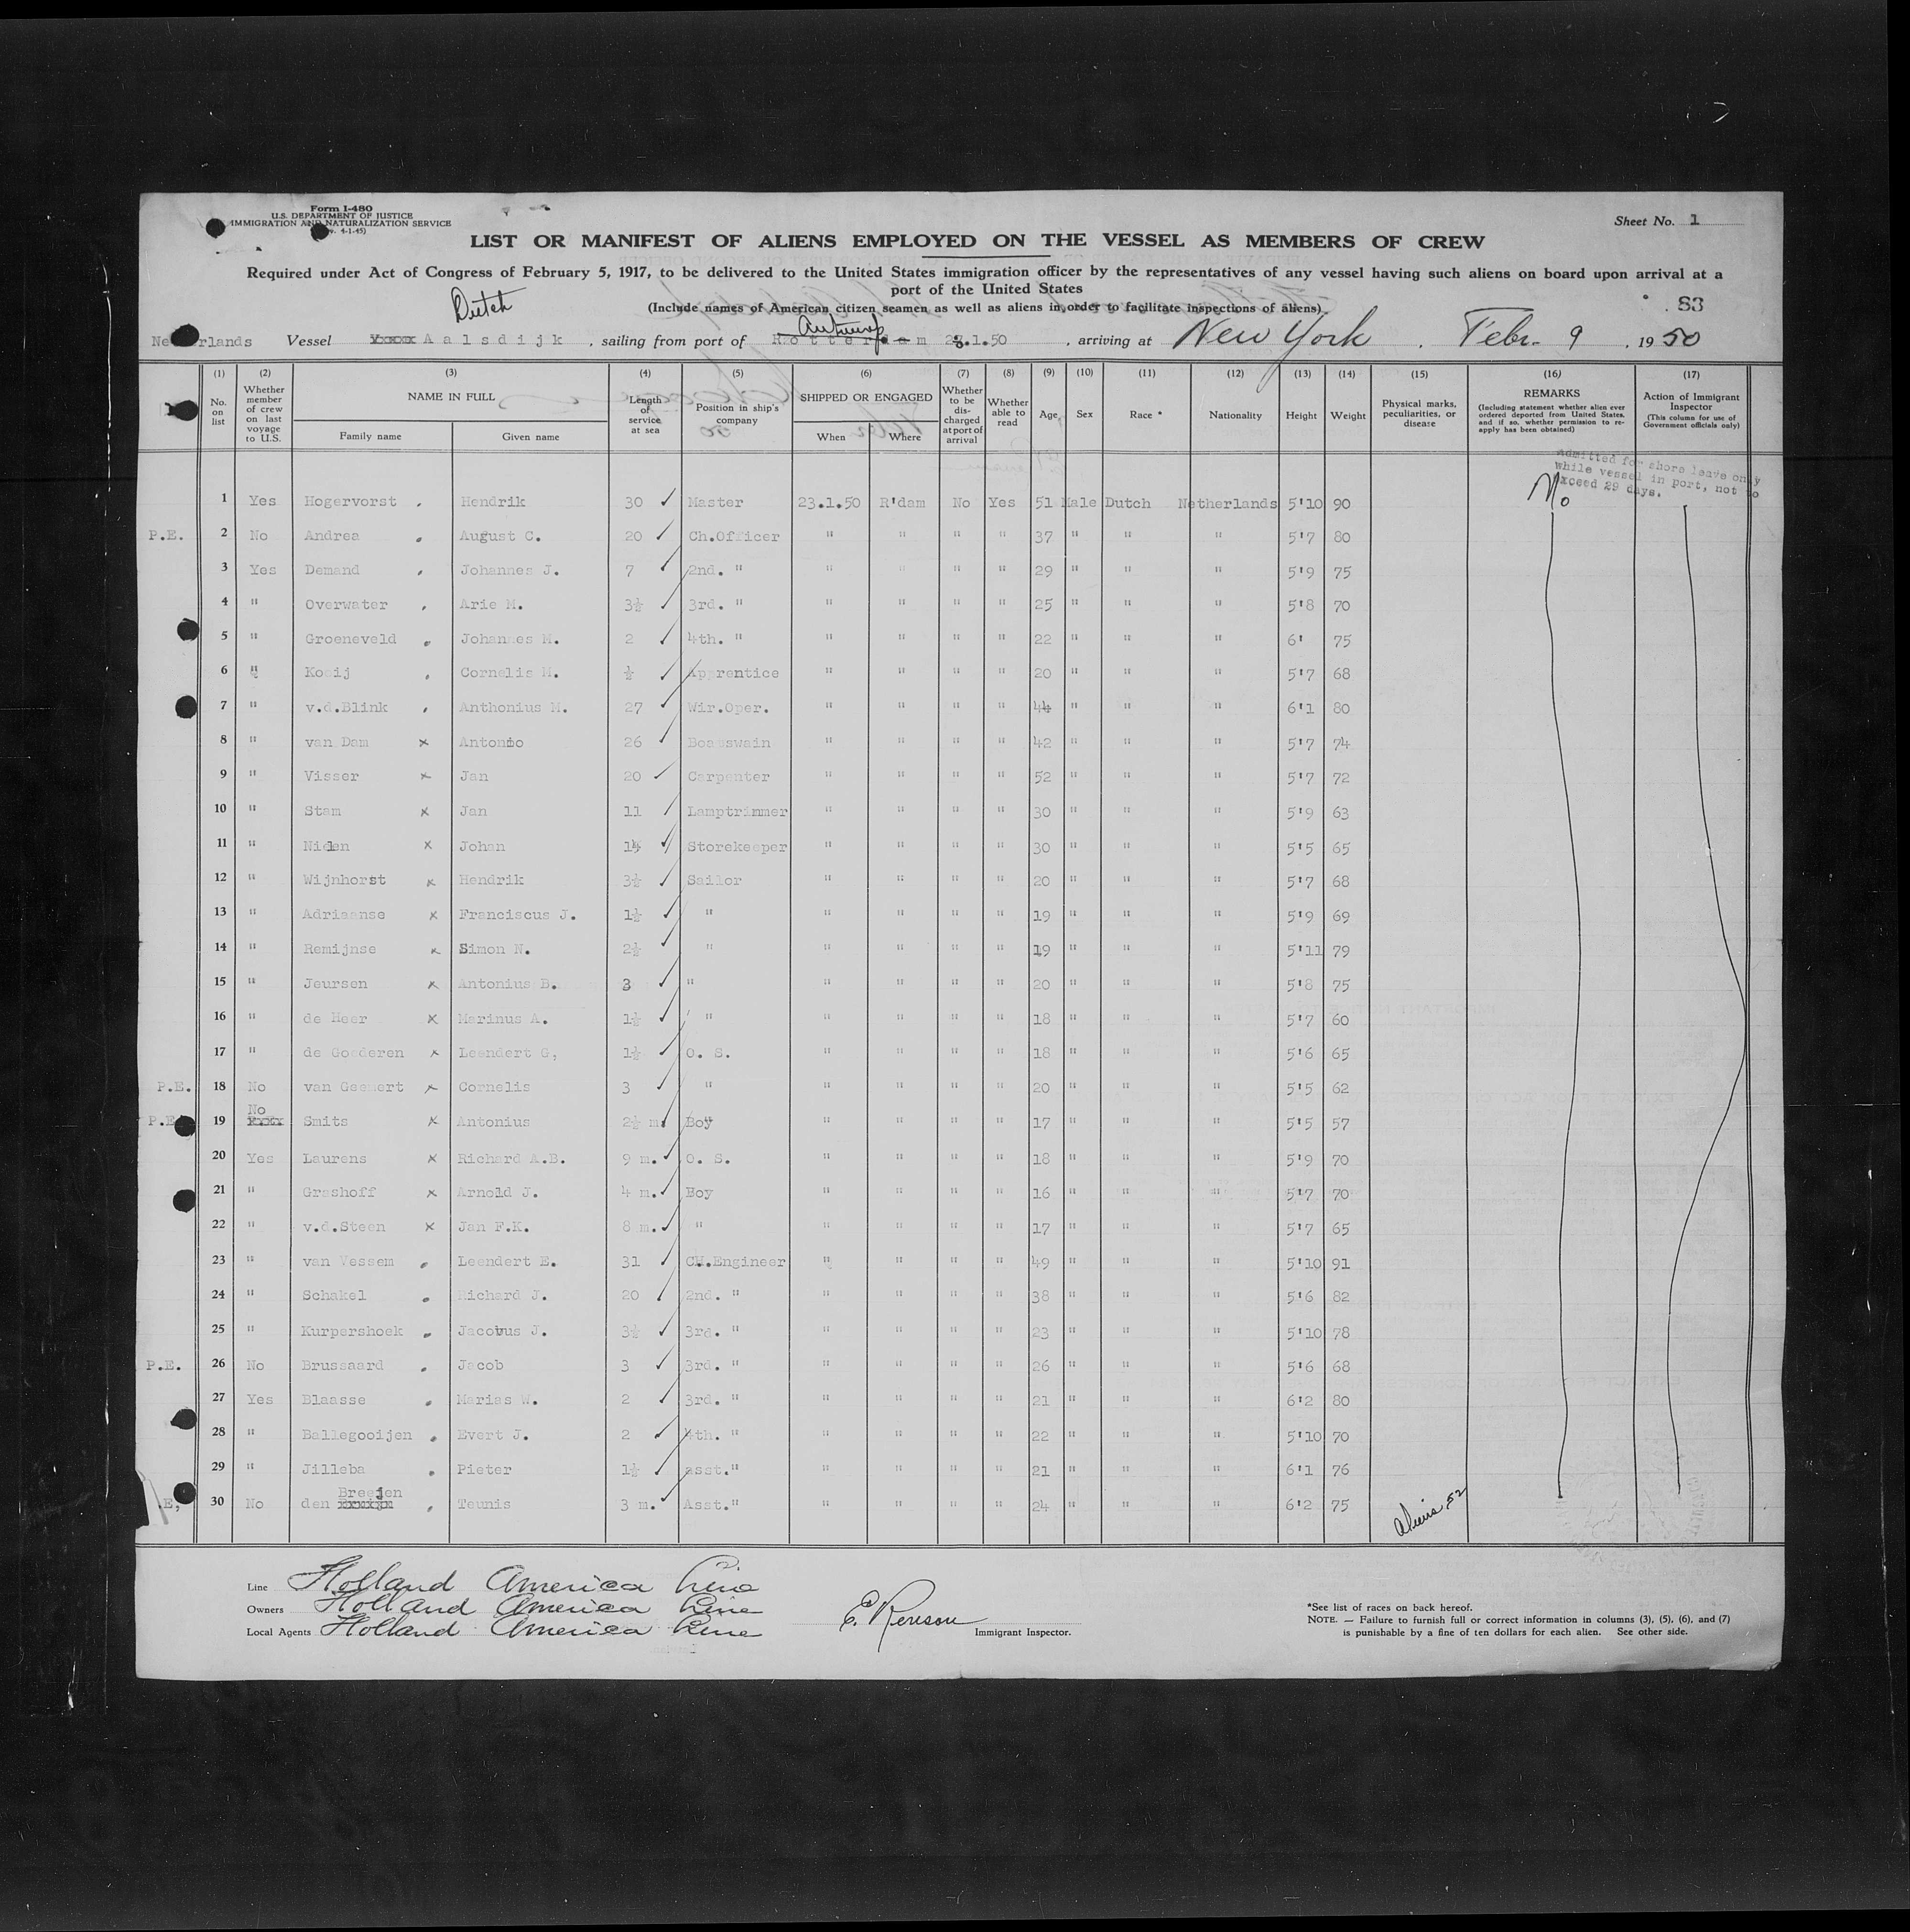 Form I-480
U.S. DEPARTMENT OF JUSTICE
IMMIGRATION AND NATURALIZATION SERVICE
4-1-45)
Sheet No. 1
LIST OR MANIFEST OF ALIENS EMPLOYED ON THE VESSEL AS MEMBERS OF CREW
Required under Act of Congress of February 5, 1917, to be delivered to the United States immigration officer by the representatives of any vessel having such aliens on board upon arrival at a
port of the United States
(Include names of American citizen seamen as well as aliens in order to facilitate inspections of aliens)
83
Dutch
Antwerp
Netherlands Vessel Aalsdijk , sailing from port of Rotterdam 23.1.50 , arriving at New York . Febr. 9 , 1950
(1) (2) (3) (4) (5) (6) (7) (8) (9) (10) (11) (12) (13) (14) (15) (16) (17)
No. on list
Whether member of crew on last voyage to U.S.
NAME IN FULL
Family name Given name
Length of service at sea
Position in ship's company
SHIPPED OR ENGAGED
When Where
Whether to be discharged at port of arrival
Whether able to read
Age Sex Race * Nationality Height Weight
Physical marks, peculiarities, or disease
REMARKS
(Including statement whether alien ever ordered deported from United States, and if so, whether permission to re-apply has been obtained)
Action of Immigrant Inspector
(This column for use of Government officials only)
Admitted for shore leave only
while vessel in port, not to
exceed 29 days.
1 Yes Hogervorst , Hendrik 30 ✓ Master 23.1.50 R'dam No Yes 51 Male Dutch Netherlands 5'10 90 No
P.E. 2 No Andrea , August C. 20 ✓ Ch.Officer " " " " 37 " " " 5'7 80
3 Yes Demand , Johannes J. 7 ✓ 2nd. " " " " " 29 " " " 5'9 75
4 " Overwater , Arie M. 3½ ✓ 3rd. " " " " " 25 " " " 5'8 70
5 " Groeneveld , Johannes M. 2 ✓ 4th. " " " " " 22 " " " 6' 75
6 " Kooij , Cornelis M. ½ ✓ Apprentice " " " " 20 " " " 5'7 68
7 " v.d.Blink , Anthonius M. 27 ✓ Wir.Oper. " " " " 44 " " " 6'1 80
8 " van Dam x Antonio 26 ✓ Boatswain " " " " 42 " " " 5'7 74
9 " Visser x Jan 20 ✓ Carpenter " " " " 52 " " " 5'7 72
10 " Stam x Jan 11 ✓ Lamptrimmer " " " " 30 " " " 5'9 63
11 " x Johan 14 ✓ Storekeeper " " " " 30 " " " 5'5 65
12 " Wijnhorst x Hendrik 3½ ✓ Sailor " " " " 20 " " " 5'7 68
13 " Adriaanse x Franciscus J. 1½ ✓ " " " " " 19 " " " 5'9 69
14 " Remijnse x Simon N. 2½ ✓ " " " " " 19 " " " 5'11 79
15 " Jeursen x Antonius B. 3 ✓ " " " " " 20 " " " 5'8 75
16 " de Heer x Marinus A. 1½ ✓ " " " " " 18 " " " 5'7 60
17 " de Goederen x Leendert G, 1½ ✓ O. S. " " " " 18 " " " 5'6 65
P.E. 18 No van x Cornelis 3 ✓ " " " " " 20 " " " 5'5 62
No
P.E. 19 Smits x Antonius 2½ m. Boy " " " " 17 " " " 5'5 57
20 Yes Laurens x Richard A.B. 9 m. ✓ O. S. " " " " 18 " " " 5'9 70
21 " Grashoff x Arnold J. 4 m. ✓ Boy " " " " 16 " " " 5'7 70
22 " v.d.Steen x Jan F.K. 8 m. ✓ " " " " " 17 " " " 5'7 65
23 " van Vessem , Leendert E. 31 ✓ CH.Engineer " " " " 49 " " " 5'10 91
24 " Schakel , Richard J. 20 ✓ 2nd. " " " " " 38 " " " 5'6 82
25 " Kurpershoek , Jacobus J. 3½ ✓ 3rd. " " " " " 23 " " " 5'10 78
P.E. 26 No Brussaard , Jacob 3 ✓ 3rd. " " " " " 26 " " " 5'6 68
27 Yes Blaasse , Marius W. 2 ✓ 3rd. " " " " " 21 " " " 6'2 80
28 " Ballegooijen , Evert J. 2 ✓ 4th. " " " " " 22 " " " 5'10 70
29 " Jilleba , Pieter 1½ ✓ asst." " " " " 21 " " " 6'1 76
Breejen
.E, 30 No den , Teunis 3 m. ✓ Asst." " " " " 24 " " " 6'2 75
Aliens 52
Line Holland America Line
Owners Holland America Line
Local Agents Holland America Line
E. Renison
Immigrant Inspector.
*See list of races on back hereof.
NOTE. — Failure to furnish full or correct information in columns (3), (5), (6), and (7)
is punishable by a fine of ten dollars for each alien. See other side.